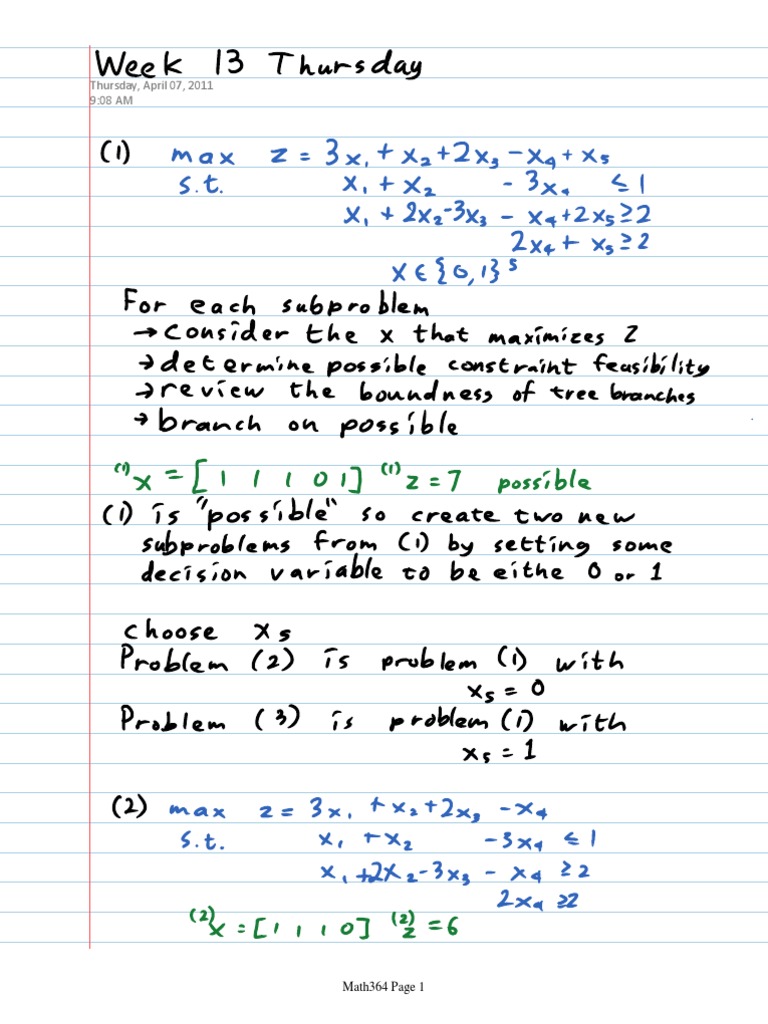 Week 13 Thursday
Thursday, April 07, 2011
9:08 AM
(1) max z = 3x₁ + x₂ + 2x₃ - x₄ + x₅
s.t. x₁ + x₂ - 3x₄ ≤ 1
x₁ + 2x₂ - 3x₃ - x₄ + 2x₅ ≥ 2
2x₄ + x₅ ≥ 2
x ∈ {0,1}⁵
For each subproblem
→ consider the x that maximizes z
→ determine possible constraint feasibility
→ review the boundness of tree branches
→ branch on possible
⁽¹⁾x = [1 1 1 0 1] ⁽¹⁾z = 7 possible
(1) is "possible" so create two new
subproblems from (1) by setting some
decision variable to be eithe 0 or 1
choose x₅
Problem (2) is problem (1) with
x₅ = 0
Problem (3) is problem (1) with
x₅ = 1
(2) max z = 3x₁ + x₂ + 2x₃ - x₄
s.t. x₁ + x₂ - 3x₄ ≤ 1
x₁ + 2x₂ - 3x₃ - x₄ ≥ 2
2x₄ ≥ 2
⁽²⁾x = [1 1 1 0] ⁽²⁾z = 6
Math364 Page 1